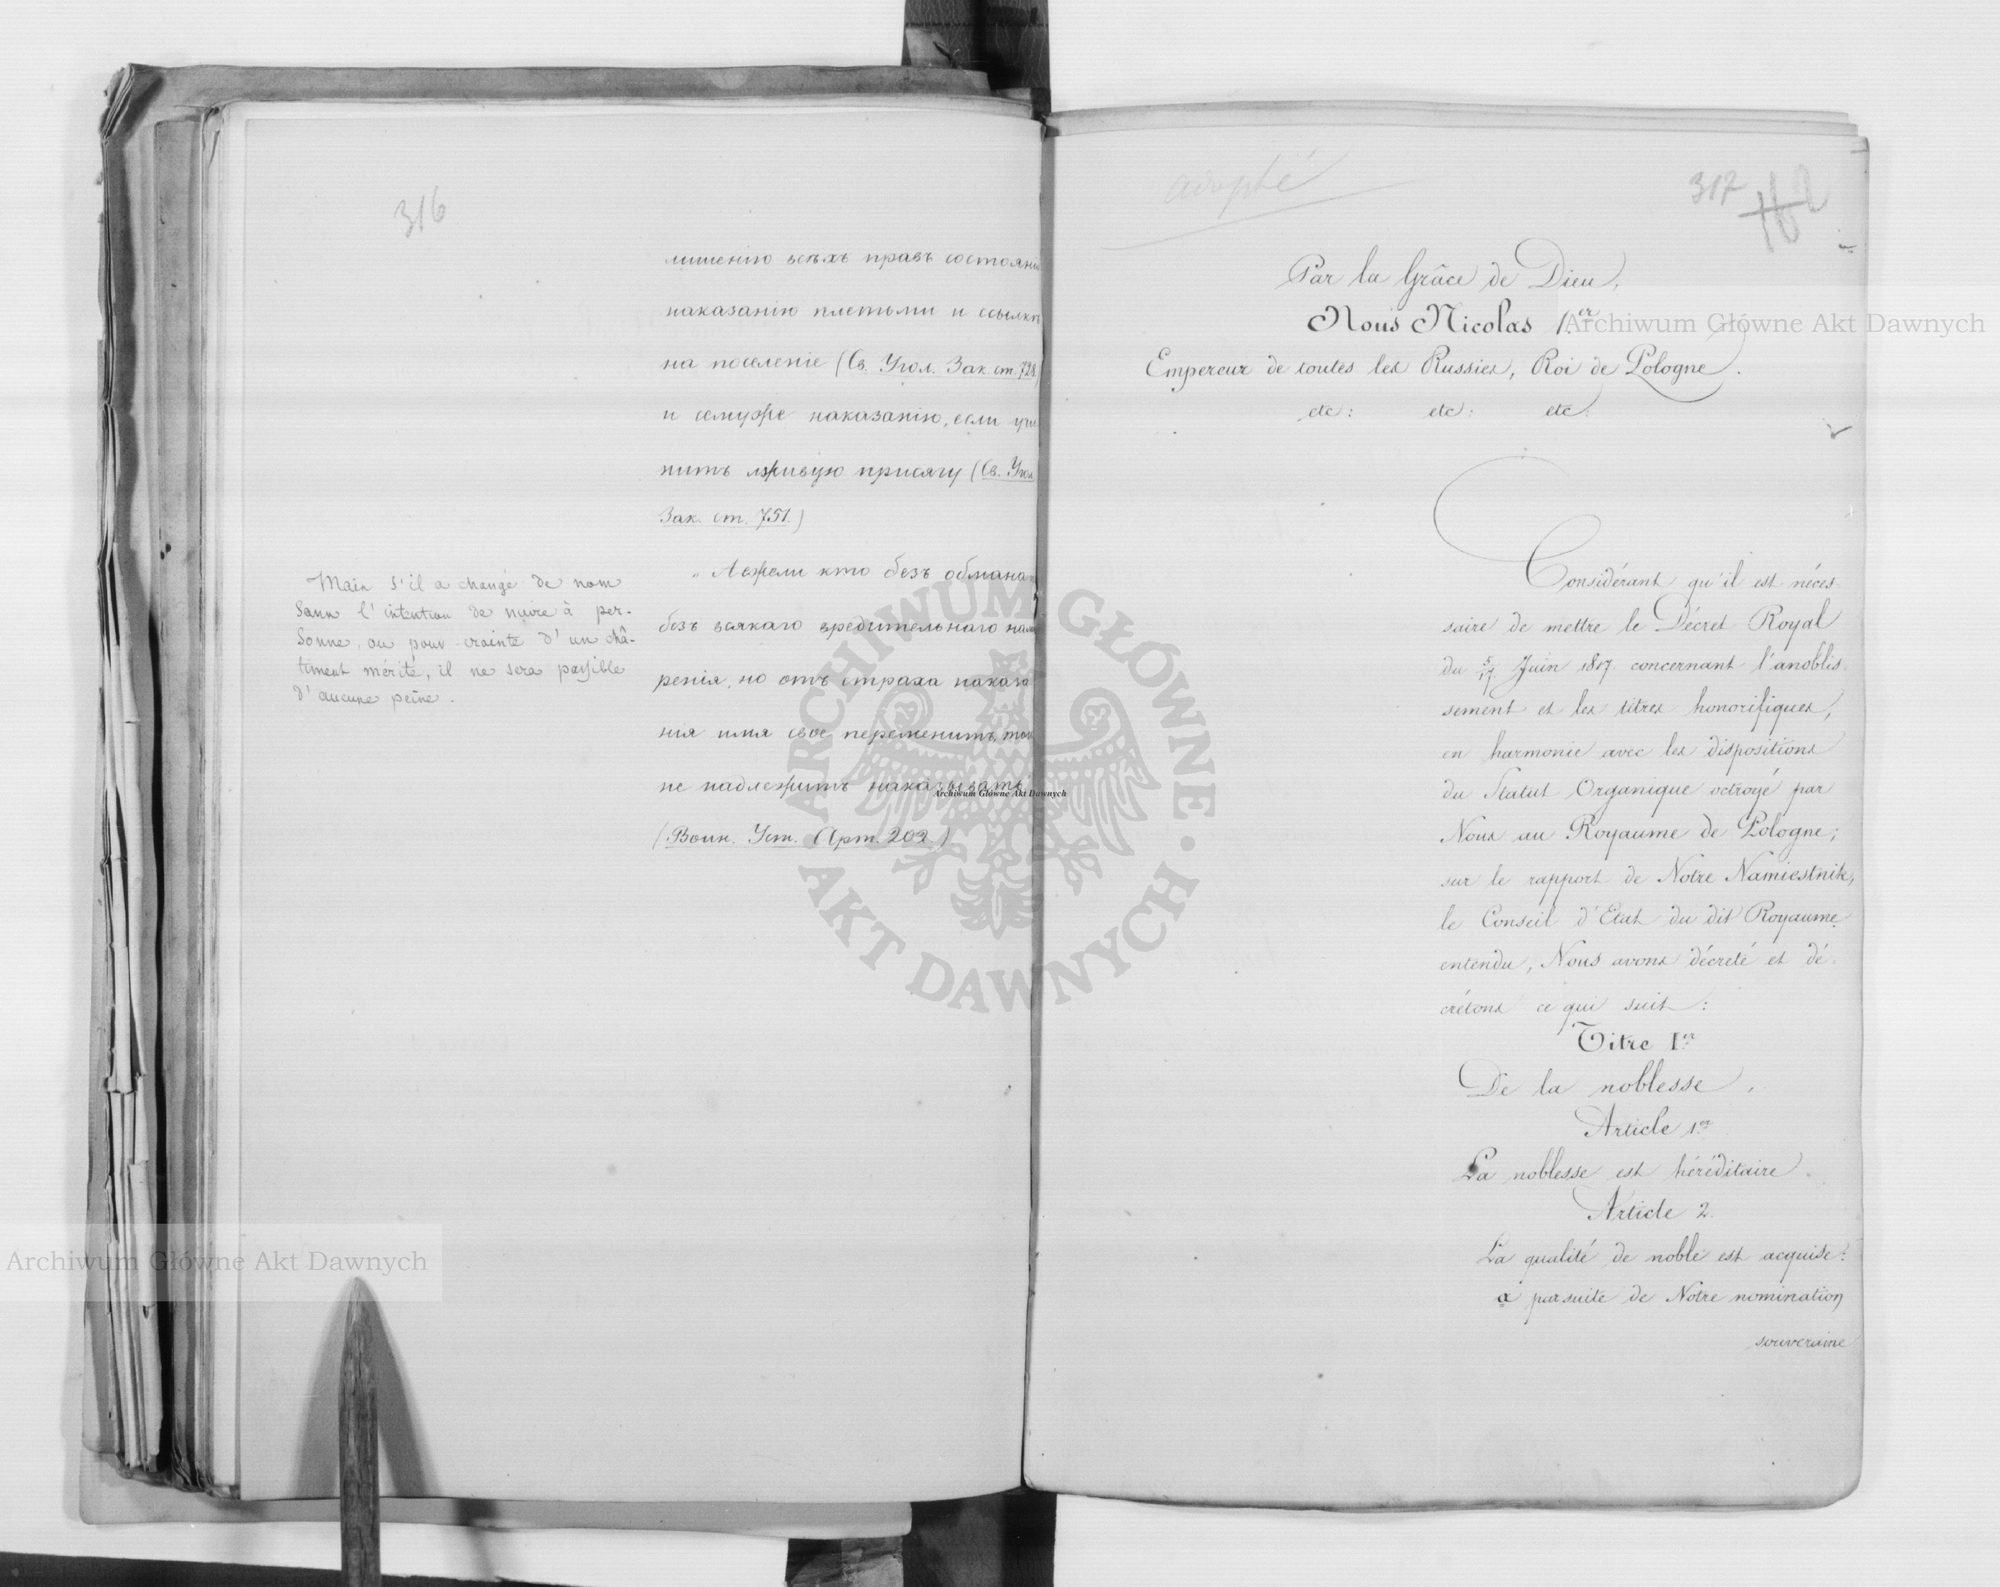 316
лишенію всѣхъ правъ состоянія
наказанію плетьми и ссылкѣ
на поселеніе (Св. Угол. Зак. ст. 728)
и семуже наказанію, если учи
нитъ лживую присягу (Св. Угол.
Зак. ст. 751.)
„ Аежели кто безъ обмана и
безъ всякаго вредительнаго намѣ
ренія, но отъ страха наказа
нія имя свое переменитъ, того
не надлежитъ наказывать
(Воин. Уст. Арт. 202.)
Mais s'il a changé de nom
sans l'intention de nuire à per-
sonne, ou pour crainte d'un châ-
timent mérité, il ne sera passible
d'aucune peine.
adopté
317
162
Par la Grâce de Dieu,
Nous Nicolas 1.er
Empereur de toutes les Russies, Roi de Pologne.
etc: etc: etc:
Considérant qu'il est néces-
saire de mettre le Décret Royal
du 5/17 Juin 1817 concernant l'anoblis-
sement et les titres honorifiques,
en harmonie avec les dispositions
du Statut Organique octroyé par
Nous au Royaume de Pologne;
sur le rapport de Notre Namiestnik,
le Conseil d'Etat du dit Royaume
entendu, Nous avons décrété et dé-
crétons ce qui suit:
Titre Ier
De la noblesse.
Article 1.er
La noblesse est héréditaire.
Article 2.
La qualité de noble est acquise:
a par suite de Notre nomination
souveraine
Archiwum Główne Akt Dawnych
Archiwum Główne Akt Dawnych
Archiwum Główne Akt Dawnych
ARCHIWUM GŁÓWNE · AKT DAWNYCH ·